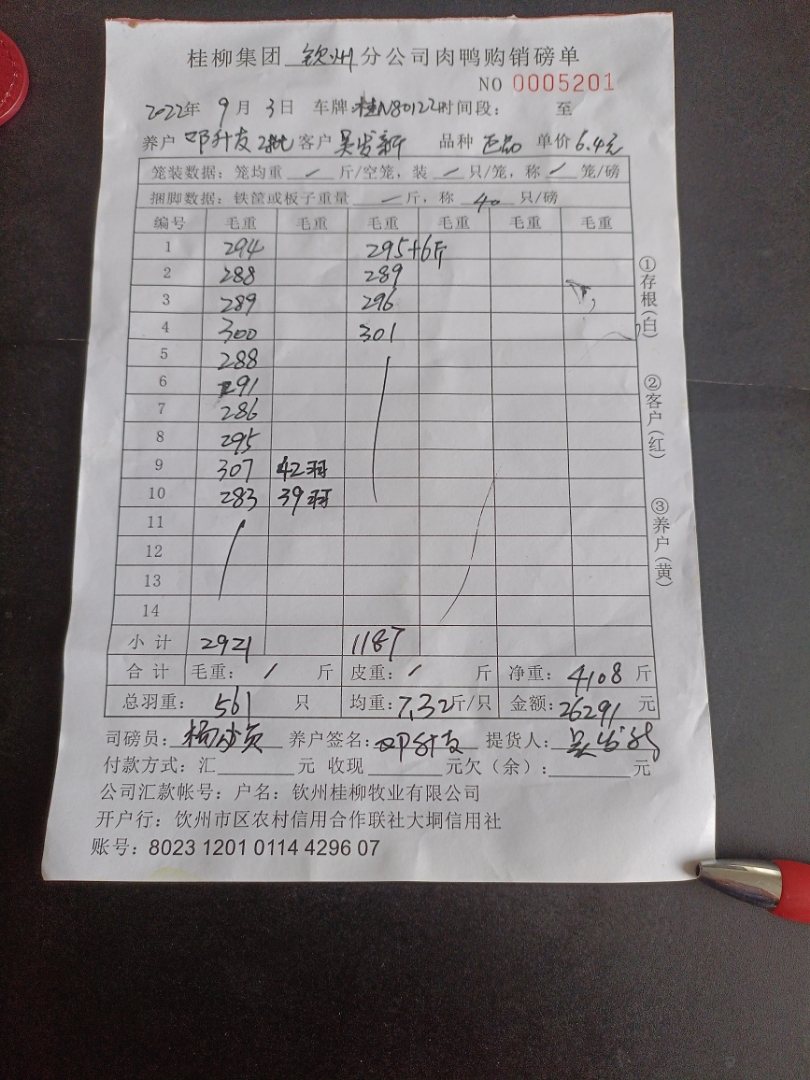 桂柳集团 钦州 分公司肉鸭购销磅单
NO 0005201
2022年 9月 3日 车牌:桂N80122 时间段: 至
养户 邓升友 2批 客户 吴发新 品种 正品 单价 6.4元
笼装数据:笼均重 / 斤/空笼,装 / 只/笼,称 / 笼/磅
捆脚数据:铁筐或板子重量 — 斤,称 40 只/磅
编号 毛重 毛重 毛重 毛重 毛重 毛重
1 294 295+6斤
2 288 289
3 289 296
4 300 301
5 288
6 291
7 286
8 295
9 307 42羽
10 283 39羽
11
12
13
14
小计 2921 1187
合计 毛重: / 斤 皮重: / 斤 净重: 4108 斤
总羽重: 561 只 均重: 7.32斤/只 金额: 26291 元
司磅员: 养户签名: 邓升友 提货人: 吴发新
付款方式:汇 元 收现 元欠(余): 元
公司汇款帐号:户名:钦州桂柳牧业有限公司
开户行:饮州市区农村信用合作联社大垌信用社
账号:8023 1201 0114 4296 07
①存根(白)
②客户(红)
③养户(黄)